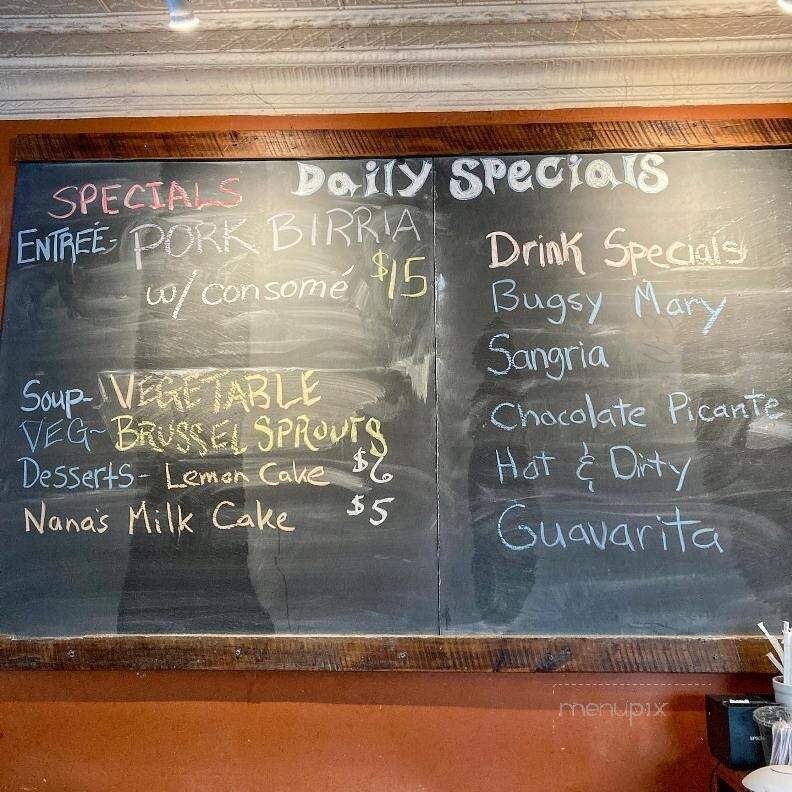 Daily Specials
SPECIALS
ENTREÉ- PORK BIRRIA
w/ consomé $15
Soup- VEGETABLE
VEG- BRUSSEL SPROUTS
Desserts- Lemon Cake $6
Nana's Milk Cake $5
Drink Specials
Bugsy Mary
Sangria
Chocolate Picante
Hot & Dirty
Guavarita
menupix